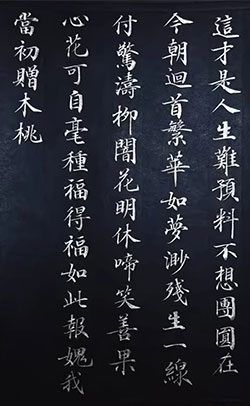 這才是人生難預料不想團圓在
今朝迴首繁華如夢渺殘生一線
付驚濤柳闇花明休啼笑善果
心花可自毫種福得福如此報媿我
當初贈木桃